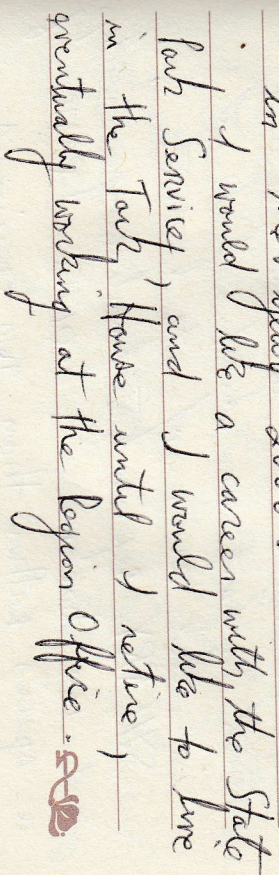 I would like a career with the State
Park Service, and I would like to live
in the Park House until I retire,
eventually working at the Region Office.